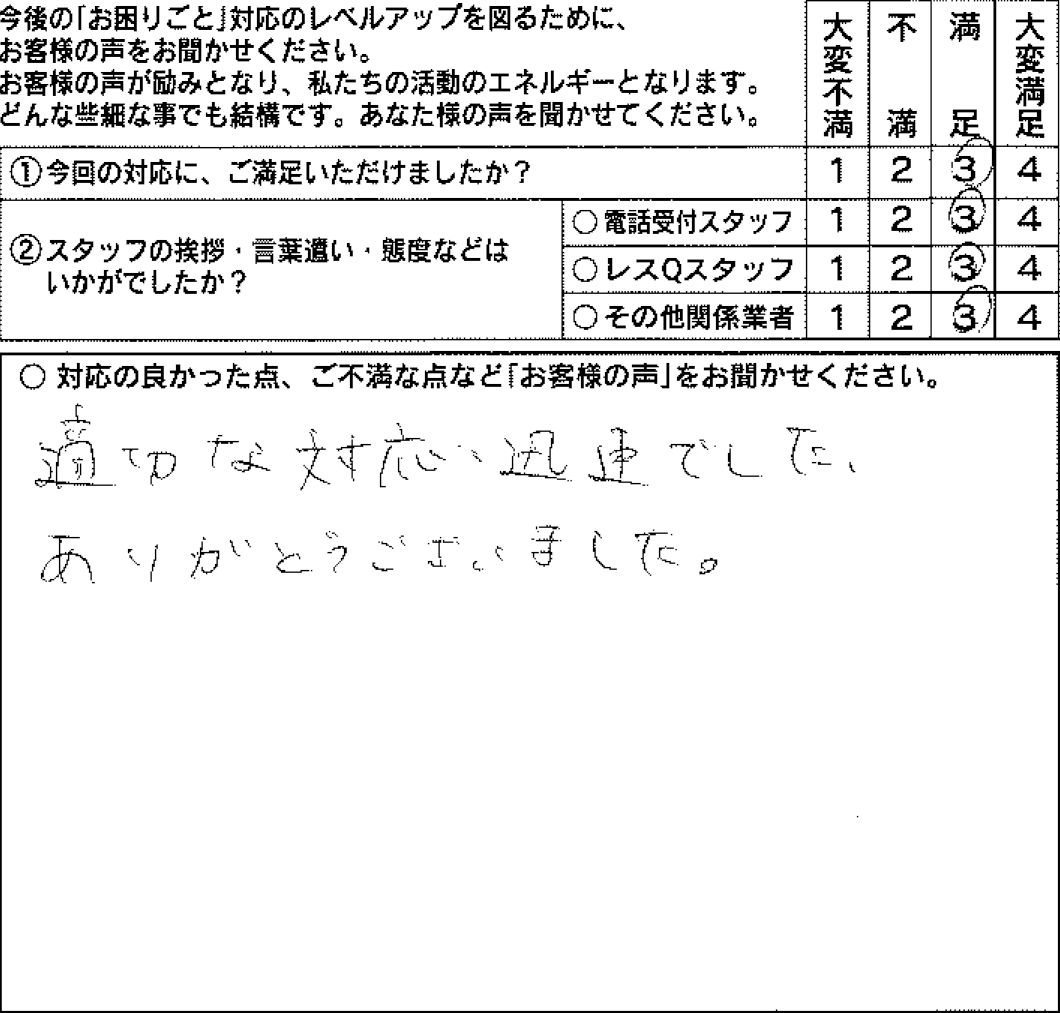 今後の「お困りごと」対応のレベルアップを図るために、
お客様の声をお聞かせください。
お客様の声が励みとなり、私たちの活動のエネルギーとなります。
どんな些細な事でも結構です。あなた様の声を聞かせてください。
大変不満 不満 満足 大変満足
①今回の対応に、ご満足いただけましたか？ 1 2 3 4
②スタッフの挨拶・言葉遣い・態度などは
いかがでしたか？
○電話受付スタッフ 1 2 3 4
○レスQスタッフ 1 2 3 4
○その他関係業者 1 2 3 4
○ 対応の良かった点、ご不満な点など「お客様の声」をお聞かせください。
適切な対応、迅速でした、
ありがとうございました。